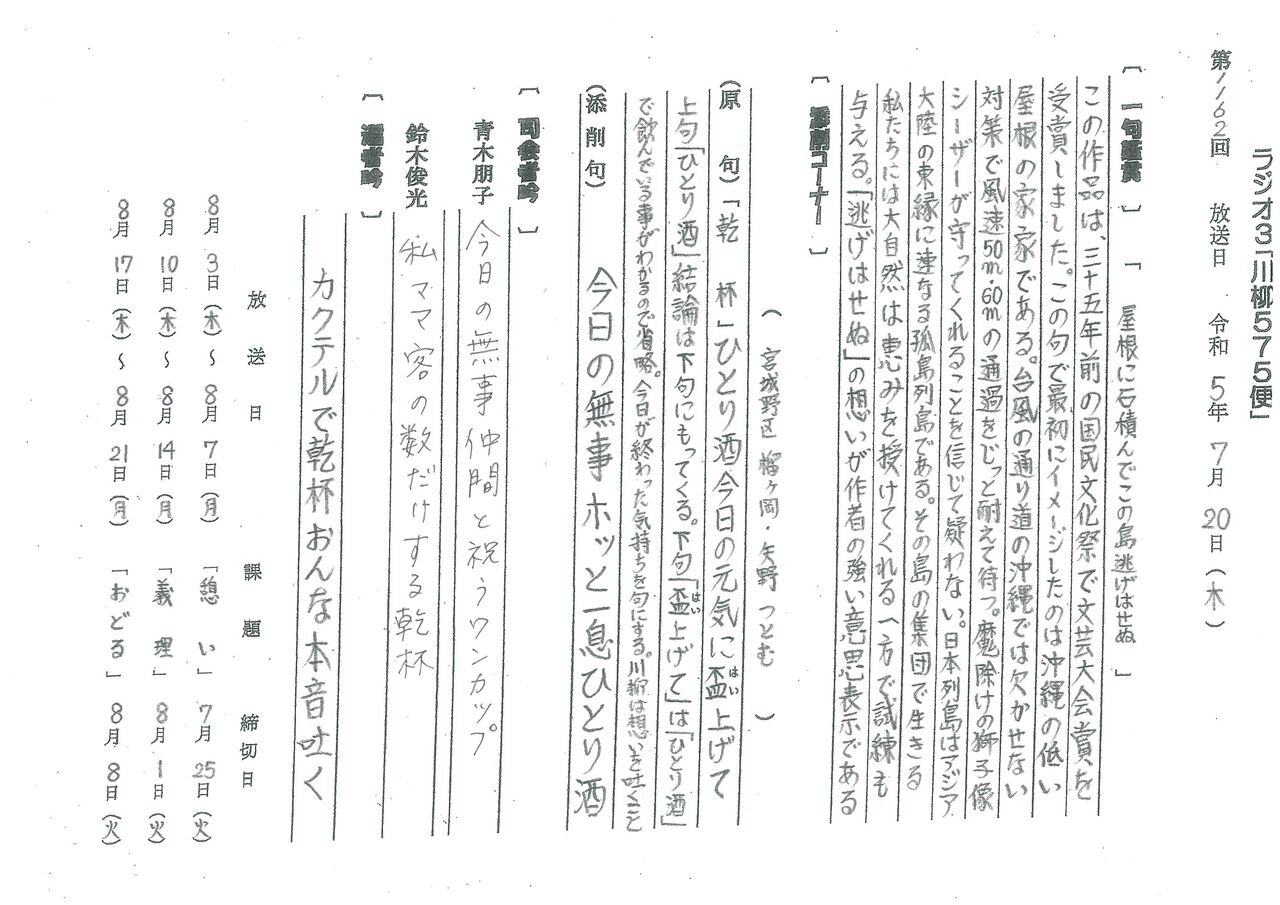 ラジオ3「川柳575便」
第1162回 放送日 令和 5年 7月 20日(木)
〔一句鑑賞〕「屋根に石積んでこの島逃げはせぬ」
この作品は、三十五年前の国民文化祭で文芸大会賞を
受賞しました。この句で最初にイメージしたのは沖縄の低い
屋根の家家である。台風の通り道の沖縄では欠かせない
対策で風速50m・60mの通過をじっと耐えて待つ。魔除けの獅子像
シーザーが守ってくれることを信じて疑わない。日本列島はアジア
大陸の東縁に連なる孤島列島である。その島の集団で生きる
私たちには大自然は恵みを授けてくれる一方で試練も
与える。「逃げはせぬ」の想いが作者の強い意思表示である
〔添削コーナー〕
(宮城野区 榴ヶ岡・矢野 つとむ)
(原 句)「乾 杯」ひとり酒今日の元気に盃上げて
はい
上句「ひとり酒」結論は下句にもってくる。下句「盃上げて」は「ひとり酒」
はい
で飲んでいる事がわかるので省略。今日が終わった気持ちを句にする。川柳は想いを吐くこと
(添削句) 今日の無事ホッと一息ひとり酒
〔司会者吟〕
青木朋子 今日の無事仲間と祝うワンカップ
鈴木俊光 私ママ客の数だけする乾杯
〔選者吟〕
カクテルで乾杯おんな本音吐く
放送日 課題 締切日
8月 3日(木)～8月 7日(月)「憩 い」7月 25日(火)
8月 10日(木)～8月 14日(月)「義 理」8月 1日(火)
8月 17日(木)～8月 21日(月)「おどる」8月 8日(火)